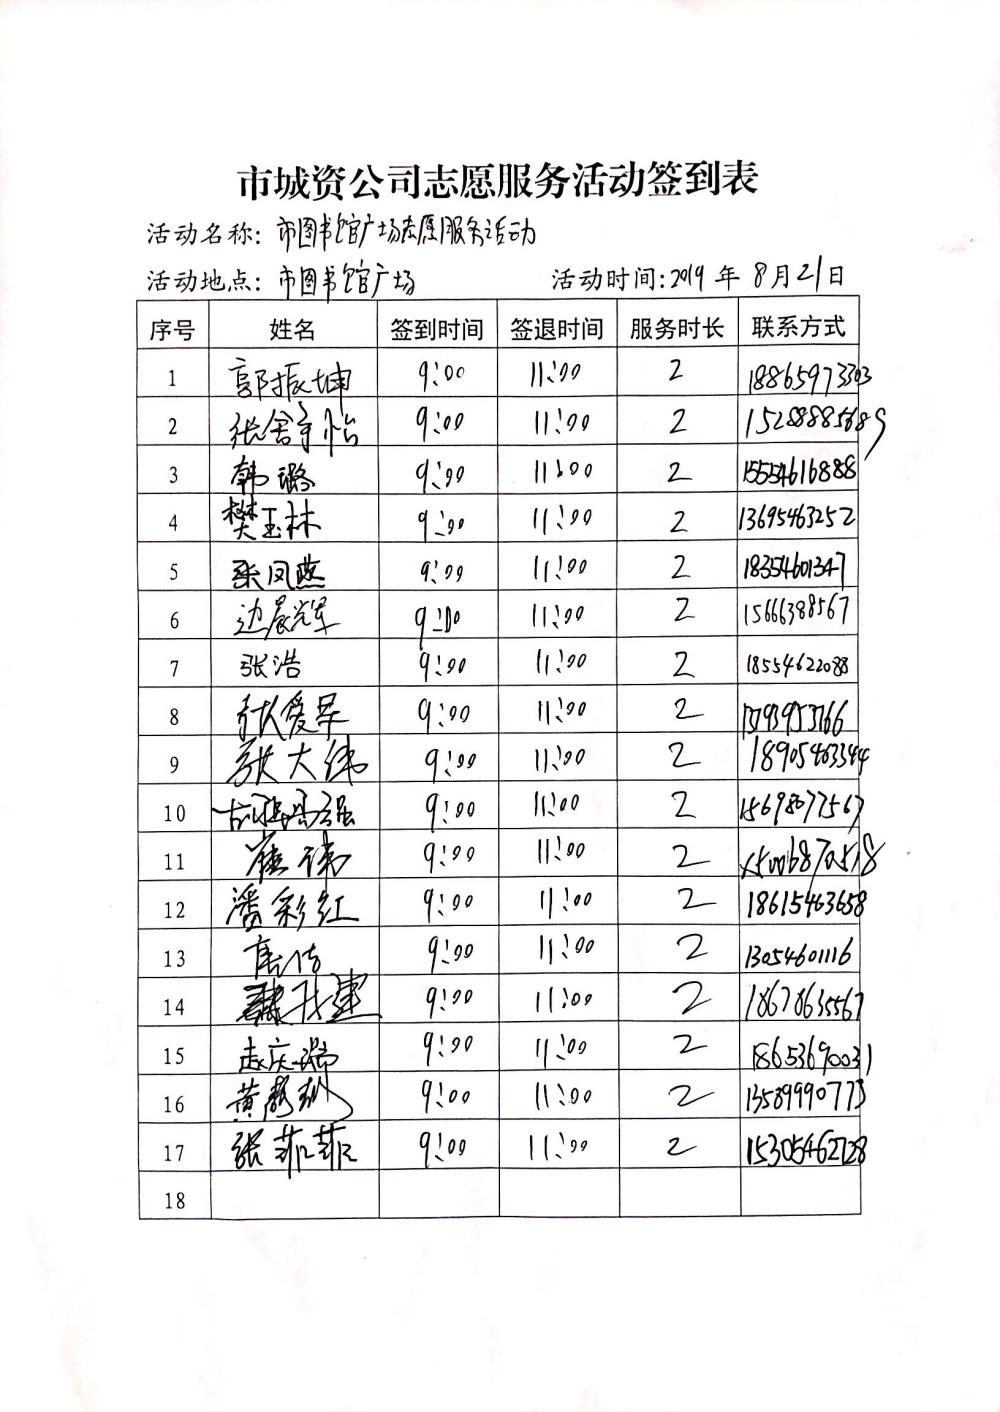 市城资公司志愿服务活动签到表
活动名称: 市图书馆广场志愿服务活动
活动地点: 市图书馆广场 活动时间: 2019 年 8 月 21 日
序号 姓名 签到时间 签退时间 服务时长 联系方式
1 郭振坤 9:00 11:00 2 18865973303
2 张舍予怡 9:00 11:00 2 15288885689
3 韩璐 9:00 11:00 2 15554616888
4 樊玉林 9:00 11:00 2 13695463252
5 张凤燕 9:00 11:00 2 18354601347
6 边晨辉 9:00 11:00 2 15666388567
7 张浩 9:00 11:00 2 18554622088
8 9:00 11:00 2
9 张大伟 9:00 11:00 2 18905463344
10 9:00 11:00 2 15698077567
11 崔伟 9:00 11:00 2
12 潘彩红 9:00 11:00 2 18615463658
13 9:00 11:00 2 13054601116
14 9:00 11:00 2 18678635567
15 赵庆瑞 9:00 11:00 2 18653690031
16 黄 9:00 11:00 2 13589990773
17 张菲菲 9:00 11:00 2 15305462728
18